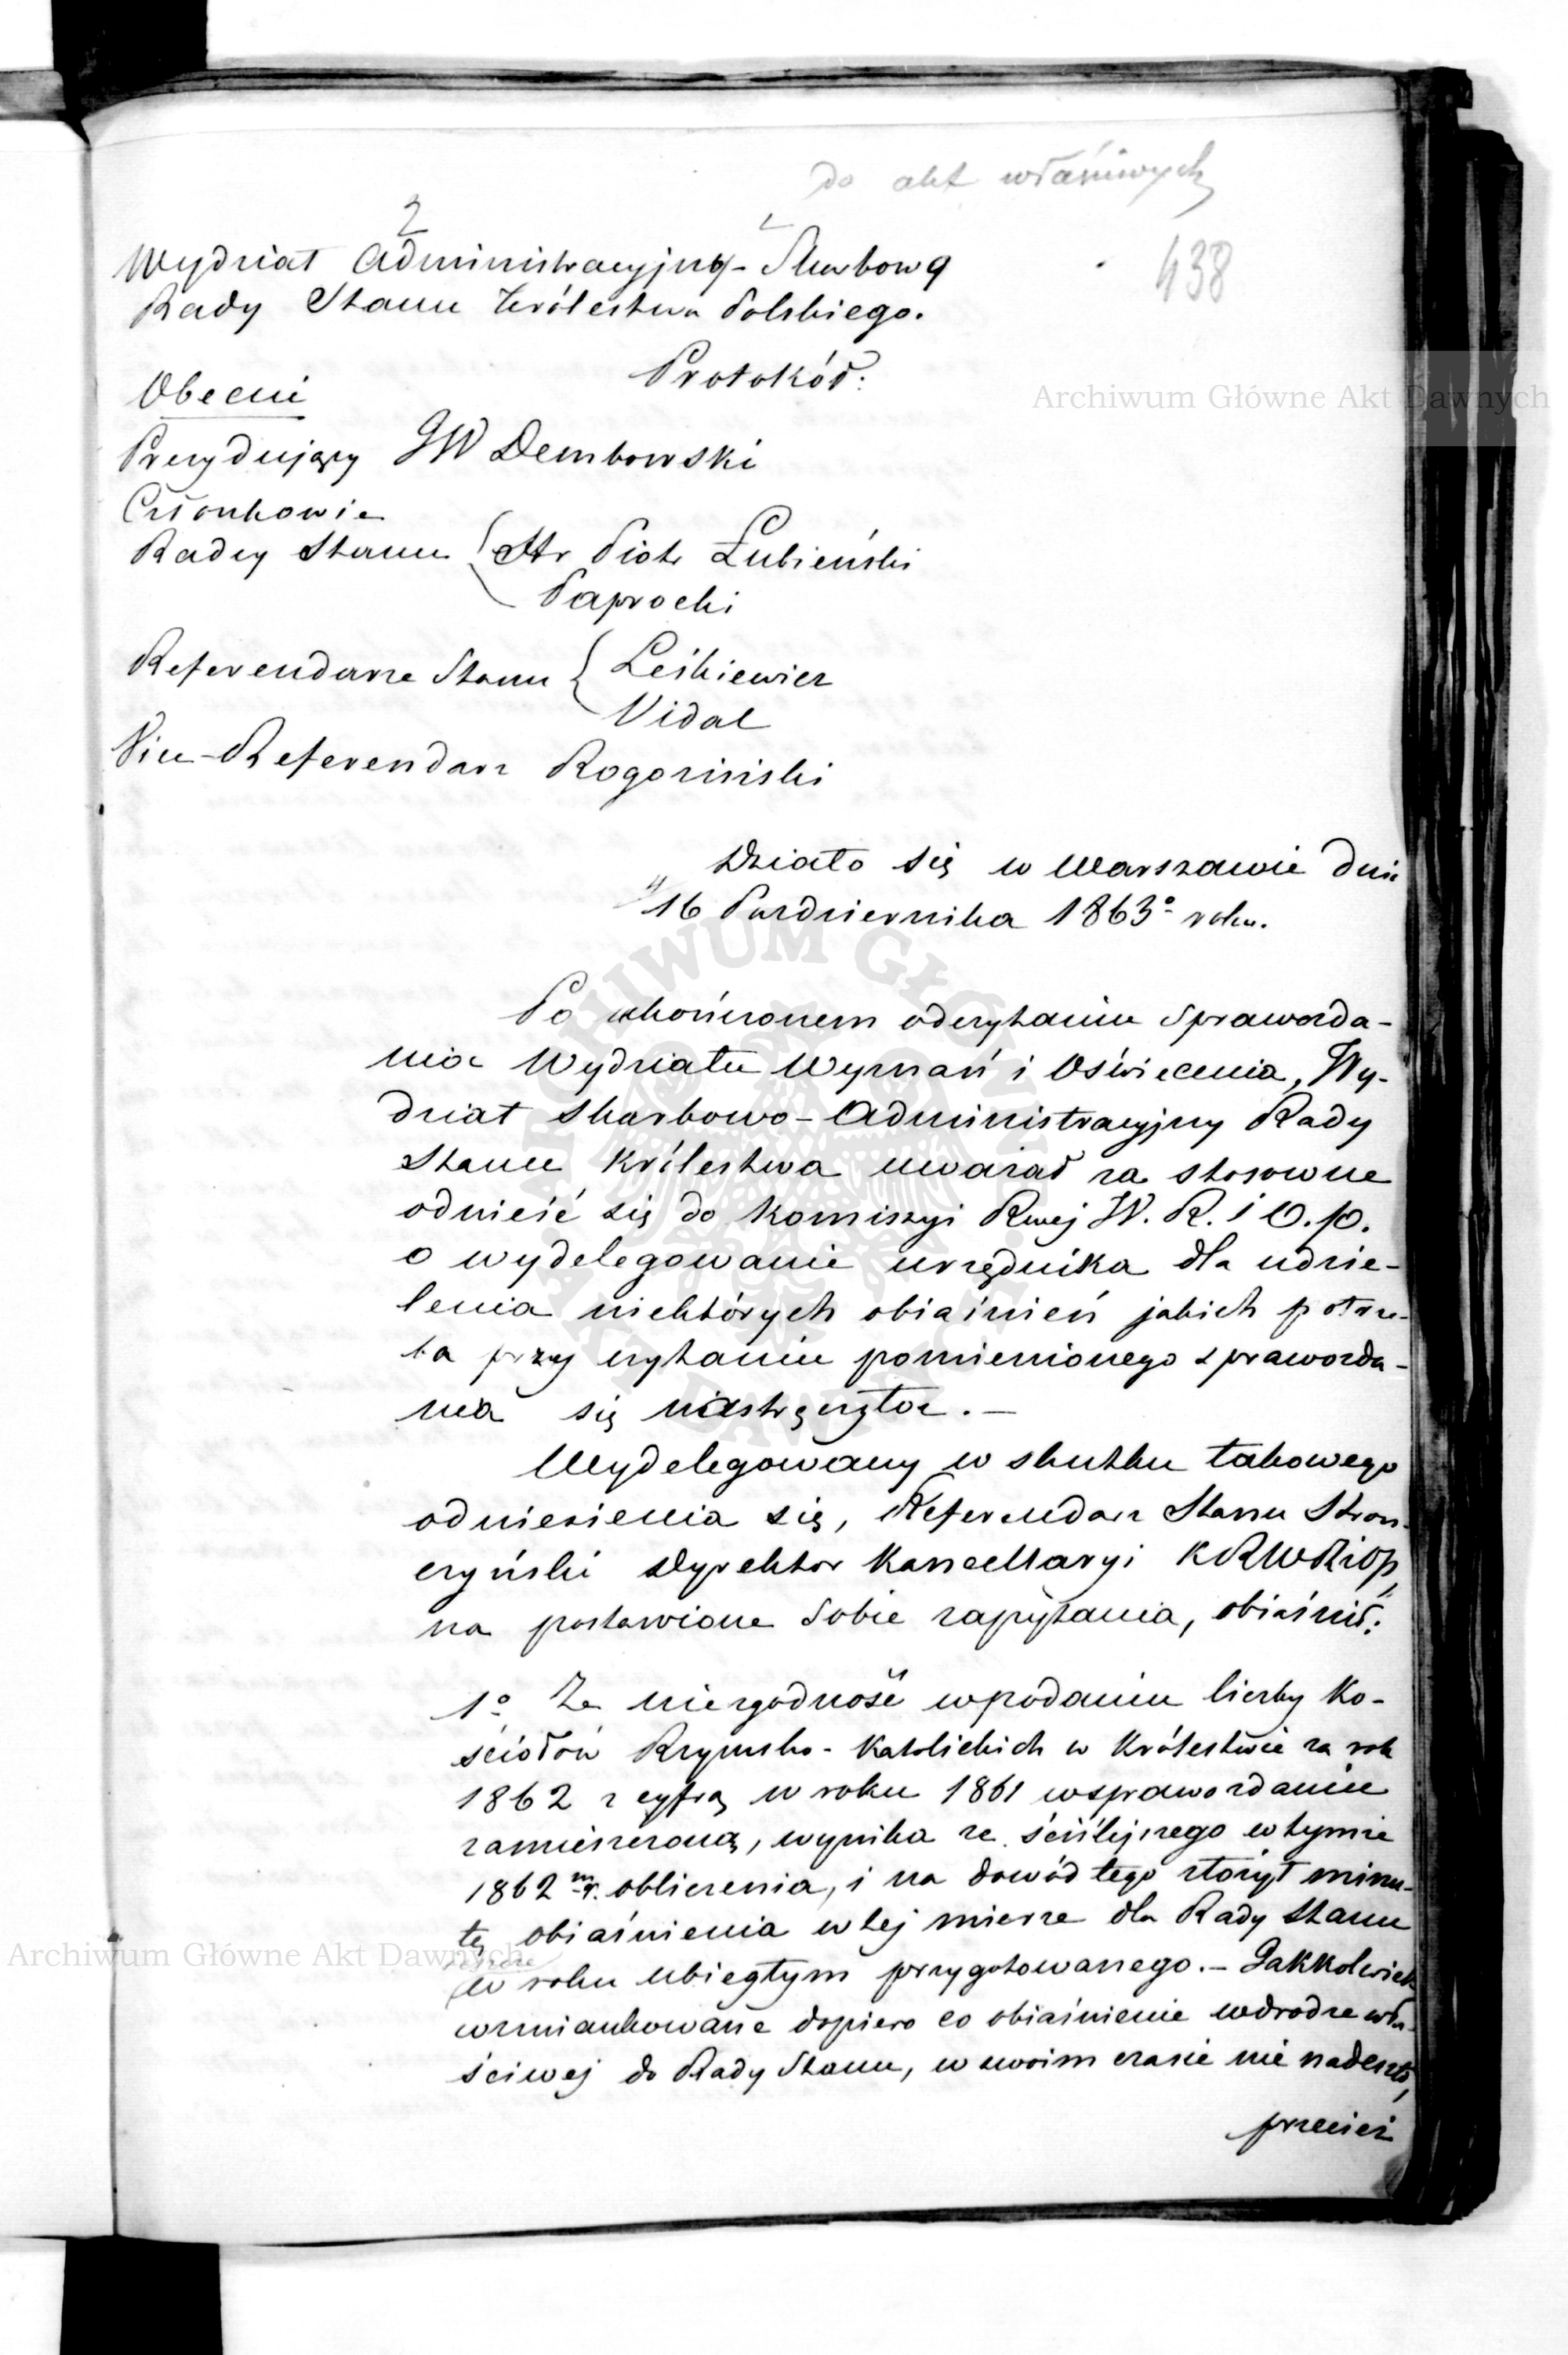 do akt właściwych
438
2 1
Wydział Administracyjny-Skarbowy
Rady Stanu Królestwa Polskiego.
Protokół:
Obecni
Prezydujący JW Dembowski
Członkowie
Radcy Stanu { Hr Piotr Łubieński
Paprocki
Referendarze Stanu { Leśkiewicz
Vidal
Vice-Referendarz Rogoziński
Działo się w Warszawie dnia
4/16 Października 1863º roku.
Po ukończonem odczytaniu Sprawozda-
nia Wydziału Wyznań i Oświecenia, Wy-
dział Skarbowo-Administracyjny Rady
Stanu Królestwa uważał za stosowne
odnieść się do Komisyi Rwej W. R. i O. p.
o wydelegowanie urzędnika dla udzie-
lenia niektórych obiaśnień jakich potrze-
ba przy czytaniu pomienionego sprawozda-
nia się nastręczyła. —
Wydelegowany w skutku takowego
odniesienia się, Referendarz Stanu Stron-
czyński Dyrektor Kancellaryi KRWRiOp,
na postawione Sobie zapytania, obiaśnił:
1º Że niezgodność w podaniu liczby Ko-
ściołów Rzymsko-Katolickich w Królestwie za rok
1862 z cyfrą w roku 1861 w sprawozdaniu
zamieszczoną, wynika ze ściślejszego w tymże
1862 m r. obliczenia, i na dowód tego złożył minu-
tę obiaśnienia w tej mierze dla Rady Stanu
jeszcze
w roku ubiegłym przygotowanego. — Jakkolwiek
wzmiankowane dopiero co obiaśnienie w drodze wła-
ściwej do Rady Stanu, w swoim czasie nie nadeszło,
przecież
Archiwum Główne Akt Dawnych
Archiwum Główne Akt Dawnych
ARCHIWUM GŁÓWNE AKT DAWNYCH